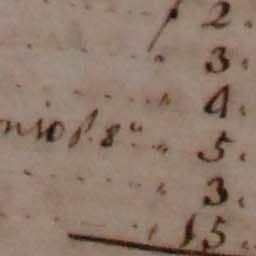 2.
3.
4.
8 5.
3.
15.